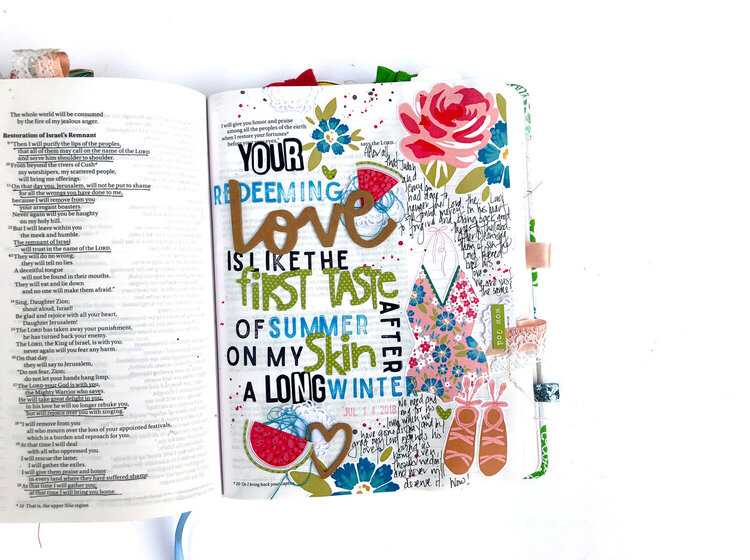 The whole world will be consumed
by the fire of my jealous anger.
Restoration of Israel's Remnant
9 "Then I will purify the lips of the peoples,
that all of them may call on the name of the LORD
and serve him shoulder to shoulder.
10 From beyond the rivers of Cush*
my worshipers, my scattered people,
will bring me offerings.
11 On that day you, Jerusalem, will not be put to shame
for all the wrongs you have done to me,
because I will remove from you
your arrogant boasters.
Never again will you be haughty
on my holy hill.
12 But I will leave within you
the meek and humble.
The remnant of Israel
will trust in the name of the LORD.
13 They will do no wrong;
they will tell no lies.
A deceitful tongue
will not be found in their mouths.
They will eat and lie down
and no one will make them afraid."
14 Sing, Daughter Zion;
shout aloud, Israel!
Be glad and rejoice with all your heart,
Daughter Jerusalem!
15 The LORD has taken away your punishment,
he has turned back your enemy.
The LORD, the King of Israel, is with you;
never again will you fear any harm.
16 On that day
they will say to Jerusalem,
"Do not fear, Zion;
do not let your hands hang limp.
17 The LORD your God is with you,
the Mighty Warrior who saves.
He will take great delight in you;
in his love he will no longer rebuke you,
but will rejoice over you with singing."
18 "I will remove from you
all who mourn over the loss of your appointed festivals,
which is a burden and reproach for you.
19 At that time I will deal
with all who oppressed you.
I will rescue the lame;
I will gather the exiles.
I will give them praise and honor
in every land where they have suffered shame.
20 At that time I will gather you;
at that time I will bring you home.
* 10 That is, the upper Nile region
I will give you honor and praise
among all the peoples of the earth
when I restore your fortunes*
before your eyes,"
says the LORD.
YOUR
REDEEMING
love
IS LIKE THE
FIRST TASTE
OF SUMMER
ON MY Skin
AFTER
A LONG WINTER
JUL 1 4 2018
After all
that Judah
and
the Lord
in his heart
to forgive and bring back and
love
we are
the same
wow God
we need
for his
love
Wow!
* 20 Or I bring back your captives